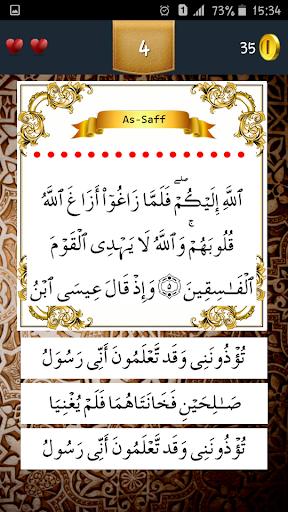 15:34
4
35
As-Saff
ٱللَّهِ إِلَيْكُمْ ۖ فَلَمَّا زَاغُوٓا۟ أَزَاغَ ٱللَّهُ
قُلُوبَهُمْ ۚ وَٱللَّهُ لَا يَهْدِى ٱلْقَوْمَ
ٱلْفَـٰسِقِينَ ٥ وَإِذْ قَالَ عِيسَى ٱبْنُ
تُؤْذُونَنِى وَقَد تَّعْلَمُونَ أَنِّى رَسُولُ
صَـٰلِحَيْنِ فَخَانَتَاهُمَا فَلَمْ يُغْنِيَا
تُؤْذُونَنِى وَقَد تَّعْلَمُونَ أَنِّى رَسُولُ